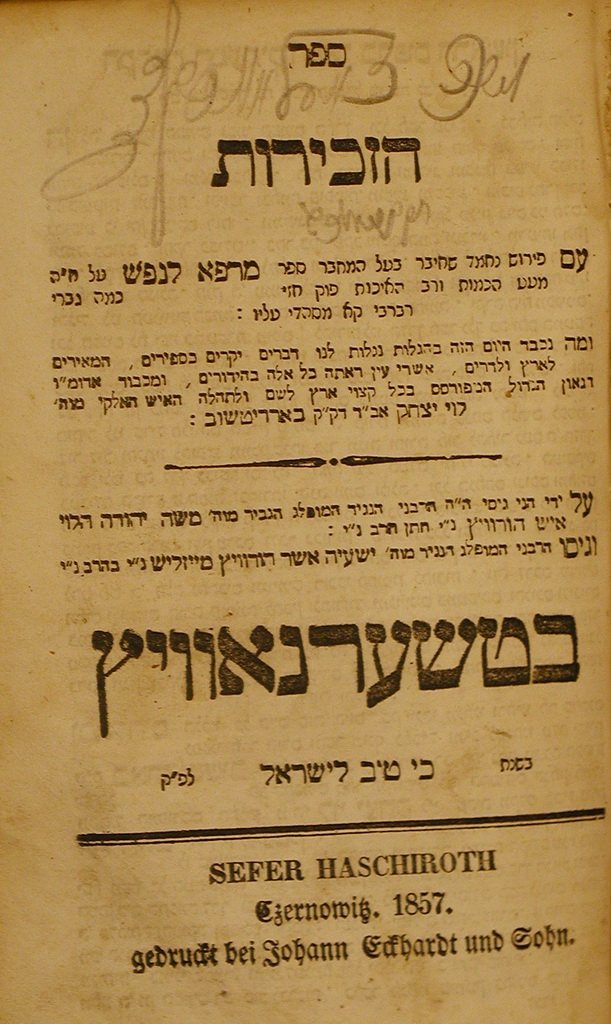 ספר
הזכירות
עם פירוש נחמד שחיבר בעל המחבר ספר מרפא לנפש על
מעט הכמות ורב האיכות פוק חזי כמה גברי
רברבי קא מסהדי עליו :
ומה נכבד היום הזה בהגלות נגלות לנו דברים יקרים כספירים , המאירים
לארץ ולדרים , אשרי עין ראתה כל אלה בהידורים , ומכבוד אדומ״ו
הגאון הגדול המפורסם בכל קצוי ארץ לשם ולתהלה האיש האלקי מוה׳
לוי יצחק אב״ד דק״ק בארדיטשוב :
על ידי הני גיסי ה״ה הרבני הנגיד המופלג הגביר מוה׳ משה יהודה הלוי
איש הורוויץ נ״י חתן הרב נ״י :
וגיסו הרבני המופלג הנגיד מוה׳ ישעיה אשר הורוויץ מייזליש נ״י בהרב נ״י
בטשערנאוויץ
בשנת כי טוב לישראל לפ״ק
SEFER HASCHIROTH
Czernowitz. 1857.
gedruckt bei Johann Eckhardt und Sohn.